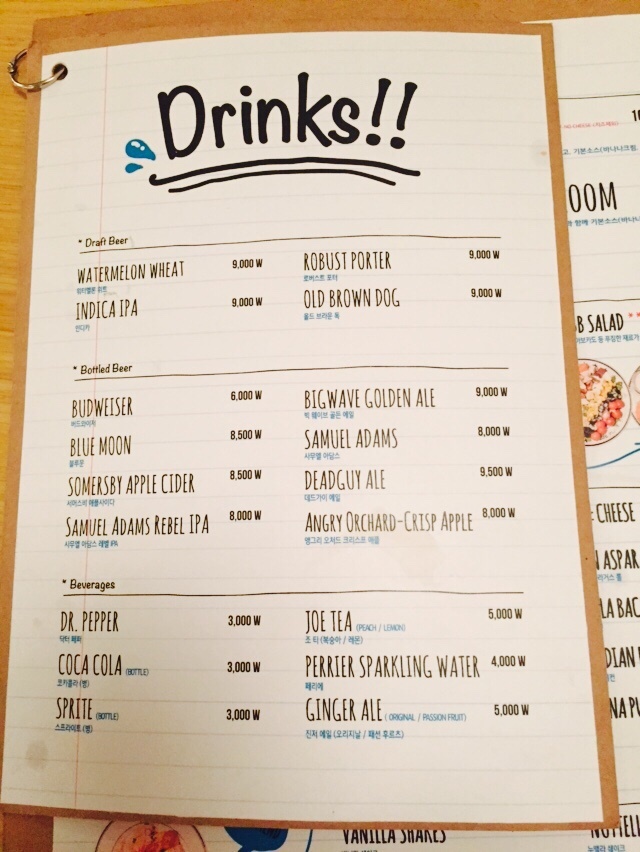 Drinks!!
* Draft Beer
WATERMELON WHEAT 9,000 W
워터멜론 위트
ROBUST PORTER 9,000 W
로버스트 포터
INDICA IPA 9,000 W
인디카
OLD BROWN DOG 9,000 W
올드 브라운 독
* Bottled Beer
BUDWEISER 6,000 W
버드와이저
BIGWAVE GOLDEN ALE 9,000 W
빅 웨이브 골든 에일
BLUE MOON 8,500 W
블루문
SAMUEL ADAMS 8,000 W
사무엘 아담스
SOMERSBY APPLE CIDER 8,500 W
서머스비 애플사이다
DEADGUY ALE 9,500 W
데드가이 에일
SAMUEL ADAMS REBEL IPA 8,000 W
사무엘 아담스 레벨 IPA
ANGRY ORCHARD-CRISP APPLE 8,000 W
앵그리 오처드 크리스프 애플
* Beverages
DR. PEPPER 3,000 W
닥터 페퍼
JOE TEA (PEACH / LEMON) 5,000 W
조 티 (복숭아 / 레몬)
COCA COLA (BOTTLE) 3,000 W
코카콜라 (병)
PERRIER SPARKLING WATER 4,000 W
페리에
SPRITE (BOTTLE) 3,000 W
스프라이트 (병)
GINGER ALE ( ORIGINAL / PASSION FRUIT) 5,000 W
진저 에일 (오리지날 / 패션 후르츠)
OOM
B SALAD
CHEESE
ASPAR
LA BAC
DIAN
NA PU
VANILLA SHAKES
NUTELL
노텔라 쉐이크